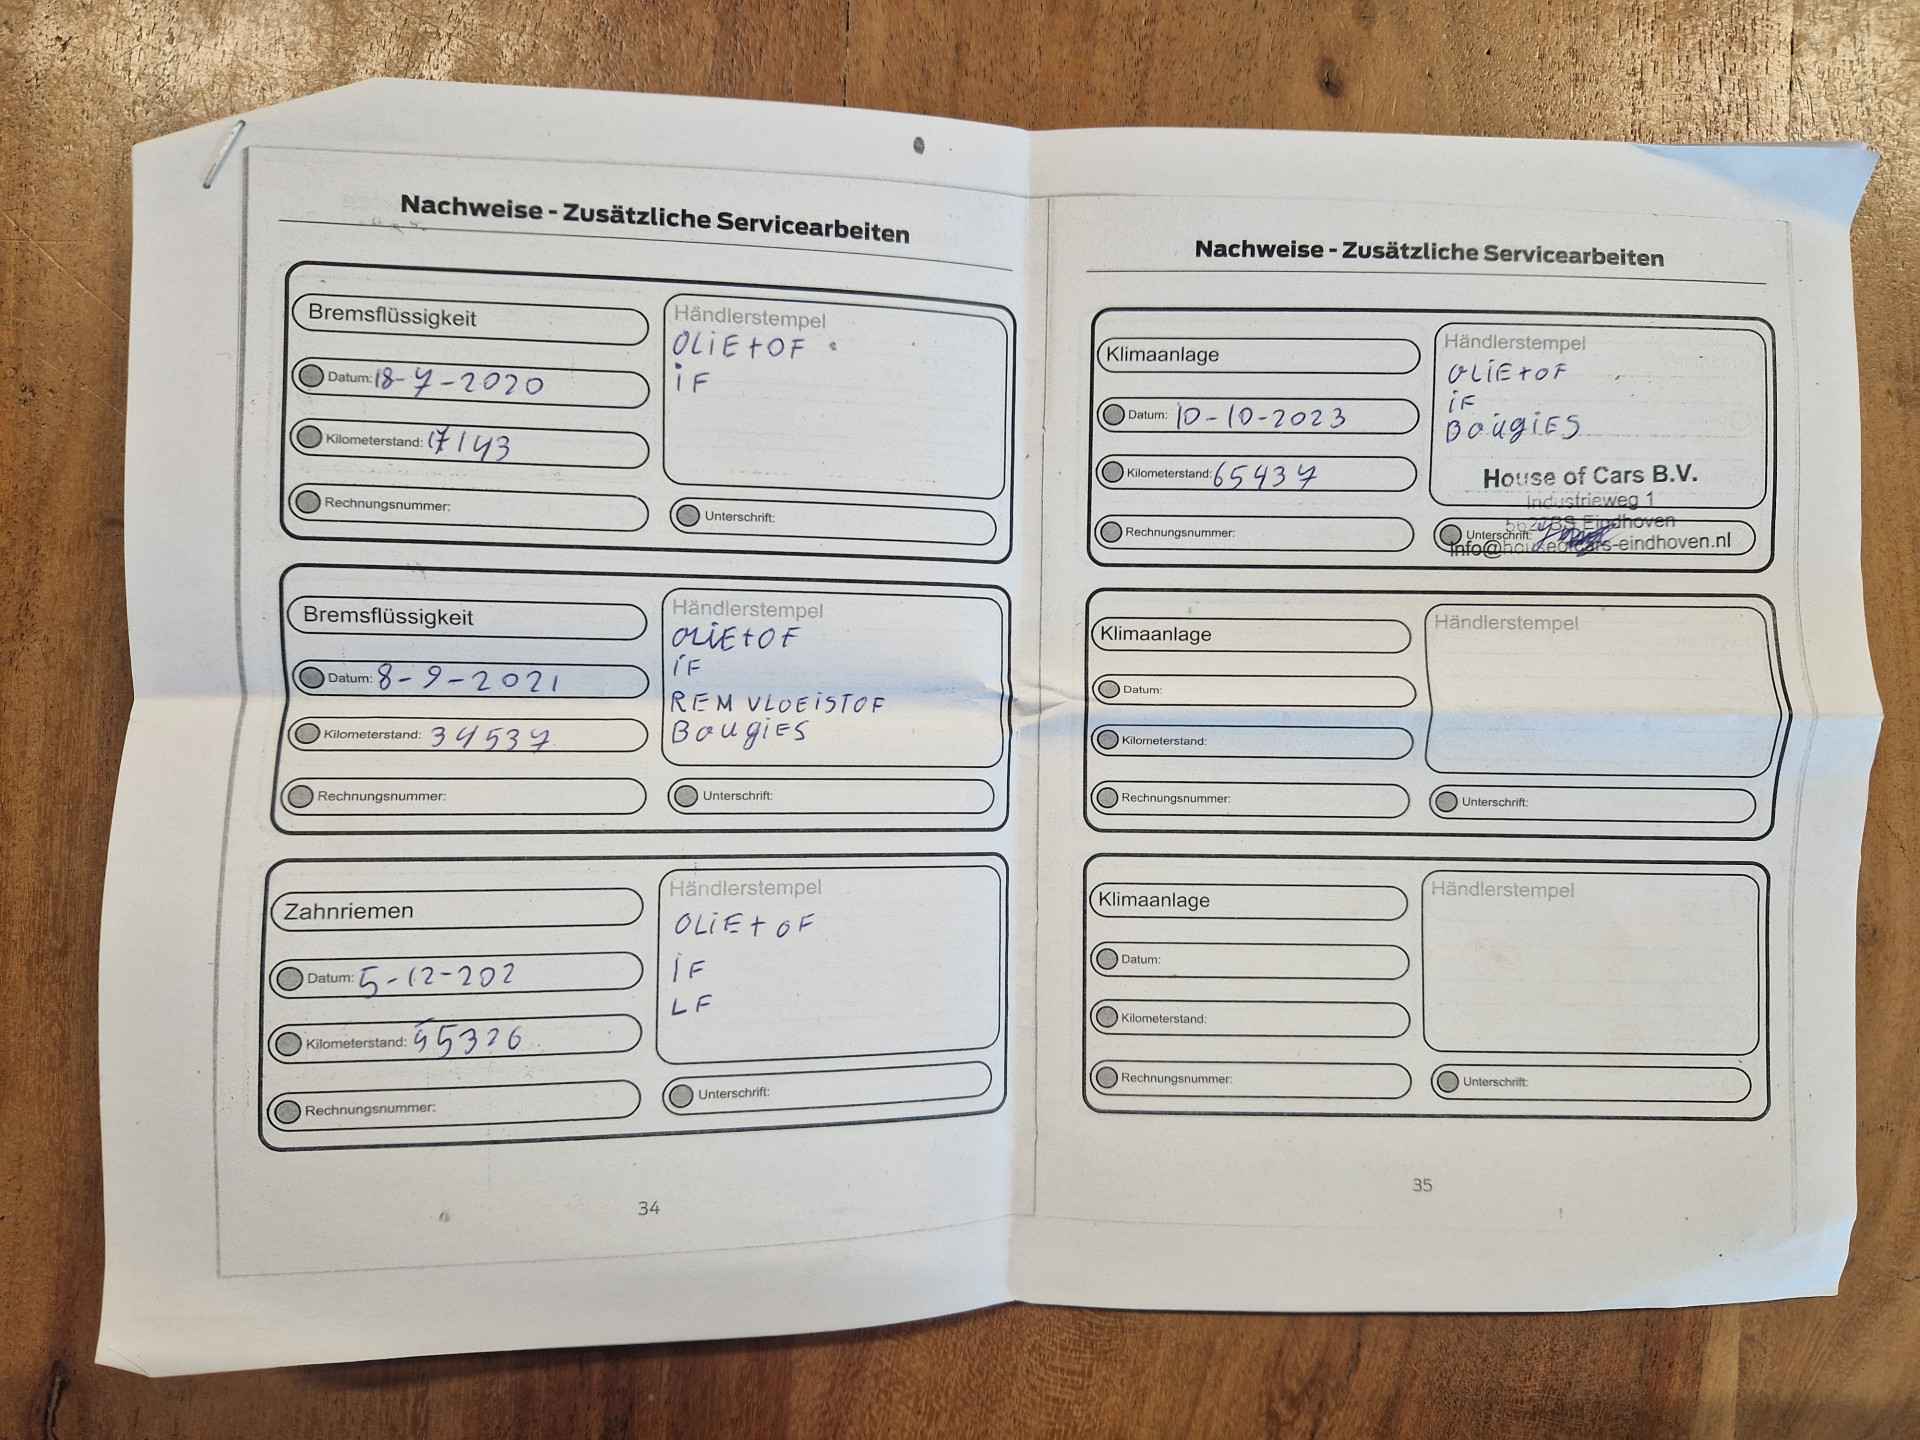 Nachweise - Zusätzliche Servicearbeiten
Bremsflüssigkeit
Datum: 18-7-2020
Kilometerstand: 17143
Rechnungsnummer:
Händlerstempel
OLiE + OF
iF
Unterschrift:
Bremsflüssigkeit
Datum: 8-9-2021
Kilometerstand: 34537
Rechnungsnummer:
Händlerstempel
OLiE + OF
iF
REM VLOEiSTOF
BougiES
Unterschrift:
Zahnriemen
Datum: 5-12-202
Kilometerstand: 55326
Rechnungsnummer:
Händlerstempel
OLiE + OF
iF
LF
Unterschrift:
34
Nachweise - Zusätzliche Servicearbeiten
Klimaanlage
Datum: 10-10-2023
Kilometerstand: 65437
Rechnungsnummer:
Händlerstempel
OLiE + OF
iF
BougiES
House of Cars B.V.
Industrieweg 1
Eindhoven
Unterschrift:
Info@houseofcars-eindhoven.nl
Klimaanlage
Datum:
Kilometerstand:
Rechnungsnummer:
Händlerstempel
Unterschrift:
Klimaanlage
Datum:
Kilometerstand:
Rechnungsnummer:
Händlerstempel
Unterschrift:
35